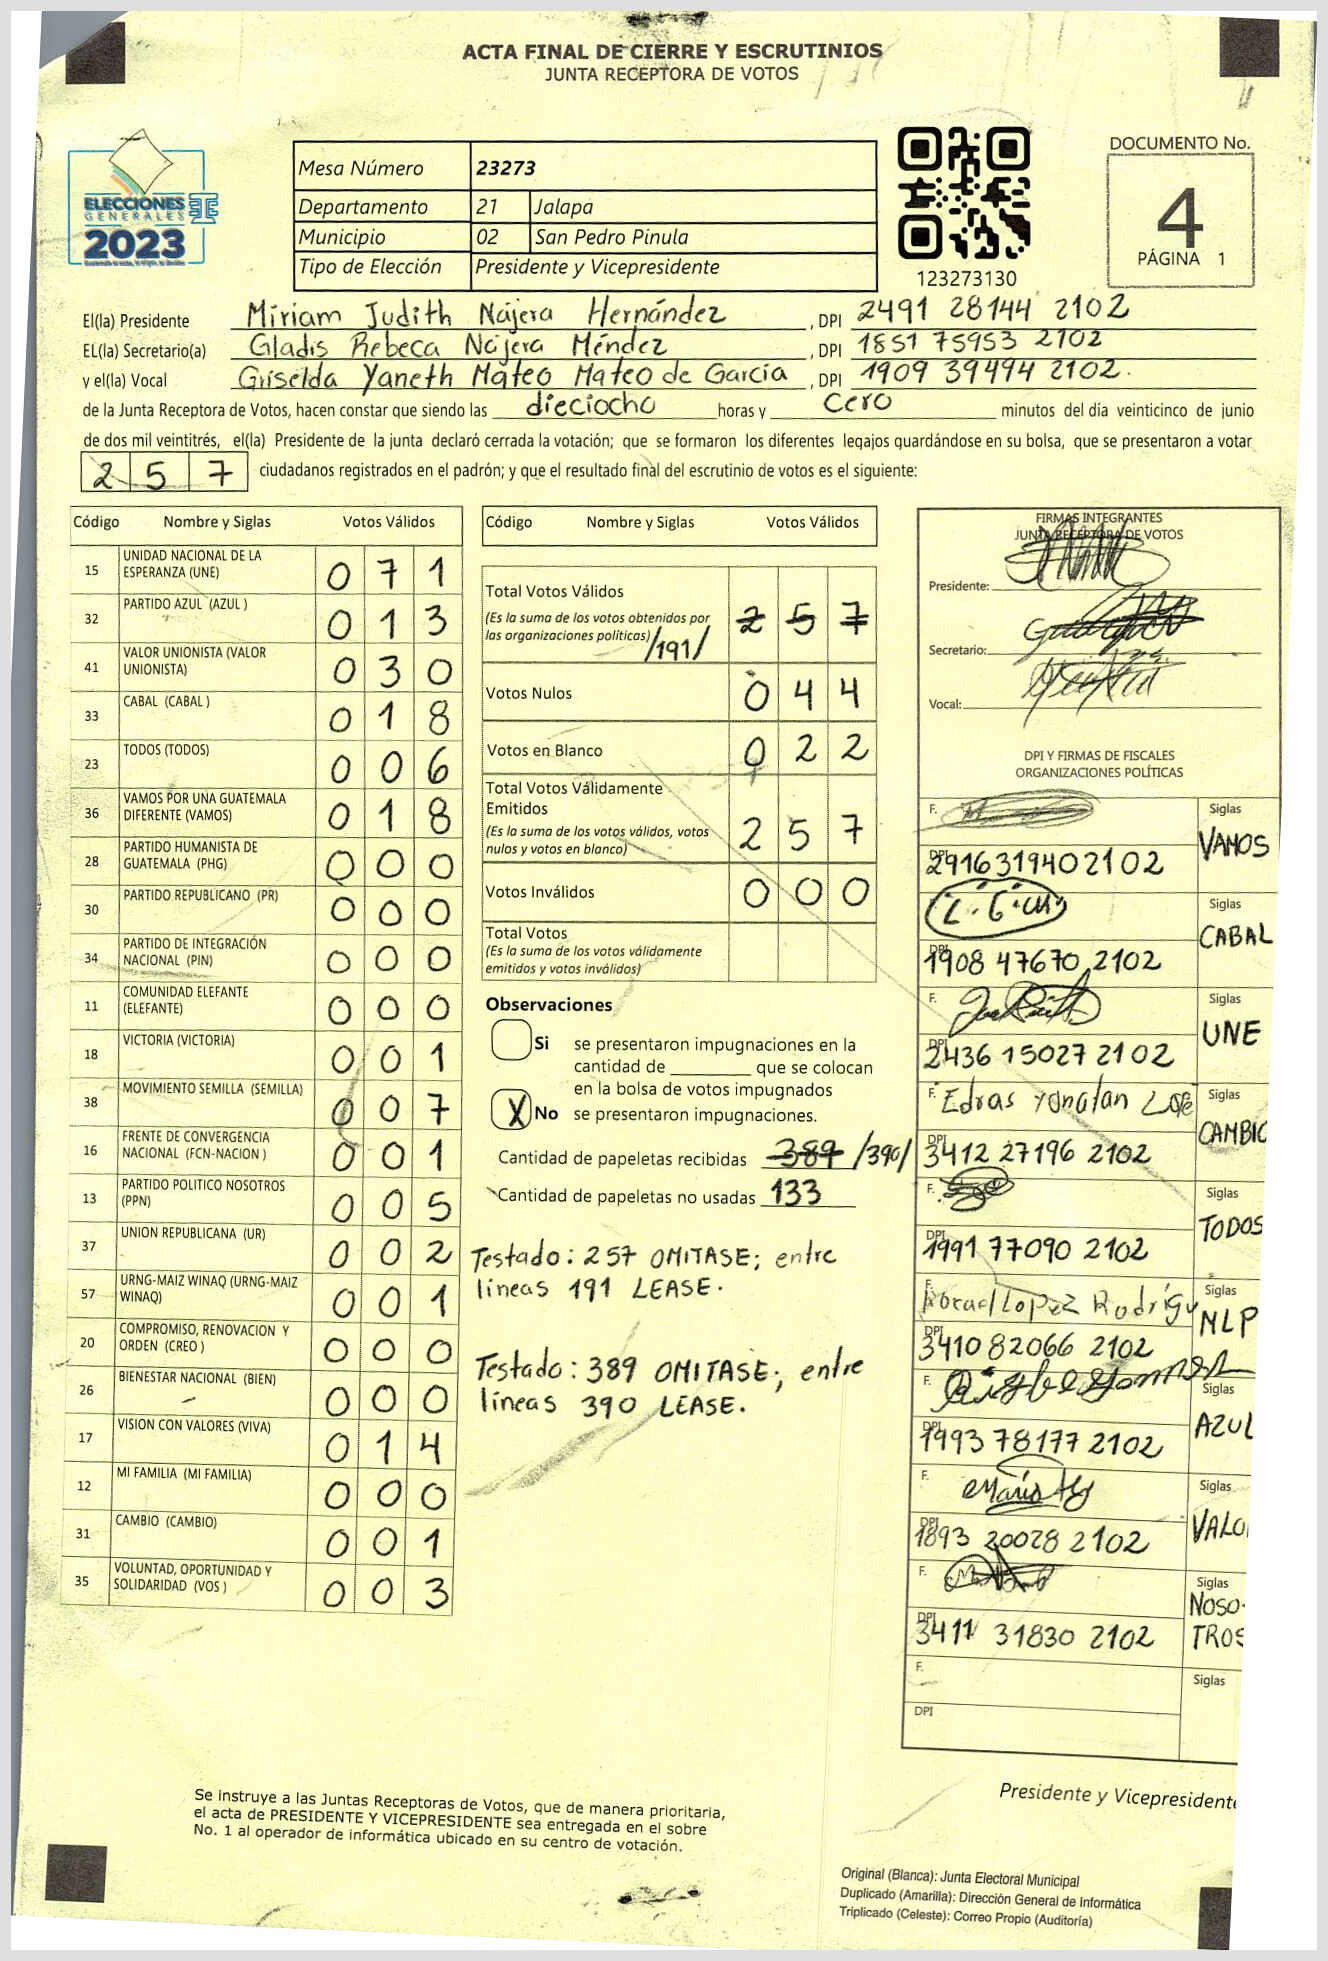 ACTA FINAL DE CIERRE Y ESCRUTINIOS
JUNTA RECEPTORA DE VOTOS
ELECCIONES
GENERALES
2023
Mesa Número 23273
Departamento 21 Jalapa
Municipio 02 San Pedro Pinula
Tipo de Elección Presidente y Vicepresidente
123273130
DOCUMENTO No.
4
PÁGINA 1
El(la) Presidente Miriam Judith Nájera Hernández , DPI 2491 28144 2102
EL(la) Secretario(a) Gladis Rebeca Nájera Méndez , DPI 1851 75953 2102
y el(la) Vocal Griselda Yaneth Mateo Mateo de Garcia , DPI 1909 39494 2102.
de la Junta Receptora de Votos, hacen constar que siendo las dieciocho horas y cero minutos del día veinticinco de junio
de dos mil veintitrés, el(la) Presidente de la junta declaró cerrada la votación; que se formaron los diferentes legajos guardándose en su bolsa, que se presentaron a votar
257 ciudadanos registrados en el padrón; y que el resultado final del escrutinio de votos es el siguiente:
Código Nombre y Siglas Votos Válidos
15 UNIDAD NACIONAL DE LA ESPERANZA (UNE) 071
32 PARTIDO AZUL (AZUL ) 013
41 VALOR UNIONISTA (VALOR UNIONISTA) 030
33 CABAL (CABAL ) 018
23 TODOS (TODOS) 006
36 VAMOS POR UNA GUATEMALA DIFERENTE (VAMOS) 018
28 PARTIDO HUMANISTA DE GUATEMALA (PHG) 000
30 PARTIDO REPUBLICANO (PR) 000
34 PARTIDO DE INTEGRACIÓN NACIONAL (PIN) 000
11 COMUNIDAD ELEFANTE (ELEFANTE) 000
18 VICTORIA (VICTORIA) 001
38 MOVIMIENTO SEMILLA (SEMILLA) 007
16 FRENTE DE CONVERGENCIA NACIONAL (FCN-NACION ) 001
13 PARTIDO POLITICO NOSOTROS (PPN) 005
37 UNION REPUBLICANA (UR) 002
57 URNG-MAIZ WINAQ (URNG-MAIZ WINAQ) 001
20 COMPROMISO, RENOVACION Y ORDEN (CREO ) 000
26 BIENESTAR NACIONAL (BIEN) 000
17 VISION CON VALORES (VIVA) 014
12 MI FAMILIA (MI FAMILIA) 000
31 CAMBIO (CAMBIO) 001
35 VOLUNTAD, OPORTUNIDAD Y SOLIDARIDAD (VOS ) 003
Código Nombre y Siglas Votos Válidos
Total Votos Válidos
(Es la suma de los votos obtenidos por
las organizaciones políticas) /191/ 257
Votos Nulos 044
Votos en Blanco 022
Total Votos Válidamente
Emitidos
(Es la suma de los votos válidos, votos
nulos y votos en blanco) 257
Votos Inválidos 000
Total Votos
(Es la suma de los votos válidamente
emitidos y votos inválidos)
Observaciones
Si se presentaron impugnaciones en la
cantidad de ________ que se colocan
en la bolsa de votos impugnados
X No se presentaron impugnaciones.
Cantidad de papeletas recibidas 389 /390/
Cantidad de papeletas no usadas 133
Testado: 257 OMITASE; entre
líneas 191 LEASE.
Testado: 389 OMITASE; entre
líneas 390 LEASE.
FIRMAS INTEGRANTES
JUNTA RECEPTORA DE VOTOS
Presidente:
Secretario:
Vocal:
DPI Y FIRMAS DE FISCALES
ORGANIZACIONES POLÍTICAS
F. Siglas
DPI 2916319402102 VAMOS
Siglas
DPI 1908 47670 2102 CABAL
F. Siglas
DPI 2436 15027 2102 UNE
F. Edras Yonatan Siglas
DPI 3412 27196 2102 CAMBIO
F. Siglas
DPI 1991 77090 2102 TODOS
F. Lopez Rodrígu Siglas
DPI 3410 82066 2102 MLP
F. Siglas
DPI 1993 78177 2102 AZUL
F. Siglas
DPI 1893 20028 2102 VALO
F. Siglas
DPI 3411 31830 2102 NOSO-
TROS
F. Siglas
DPI
Presidente y Vicepresidente
Se instruye a las Juntas Receptoras de Votos, que de manera prioritaria,
el acta de PRESIDENTE Y VICEPRESIDENTE sea entregada en el sobre
No. 1 al operador de informática ubicado en su centro de votación.
Original (Blanca): Junta Electoral Municipal
Duplicado (Amarilla): Dirección General de Informática
Triplicado (Celeste): Correo Propio (Auditoría)